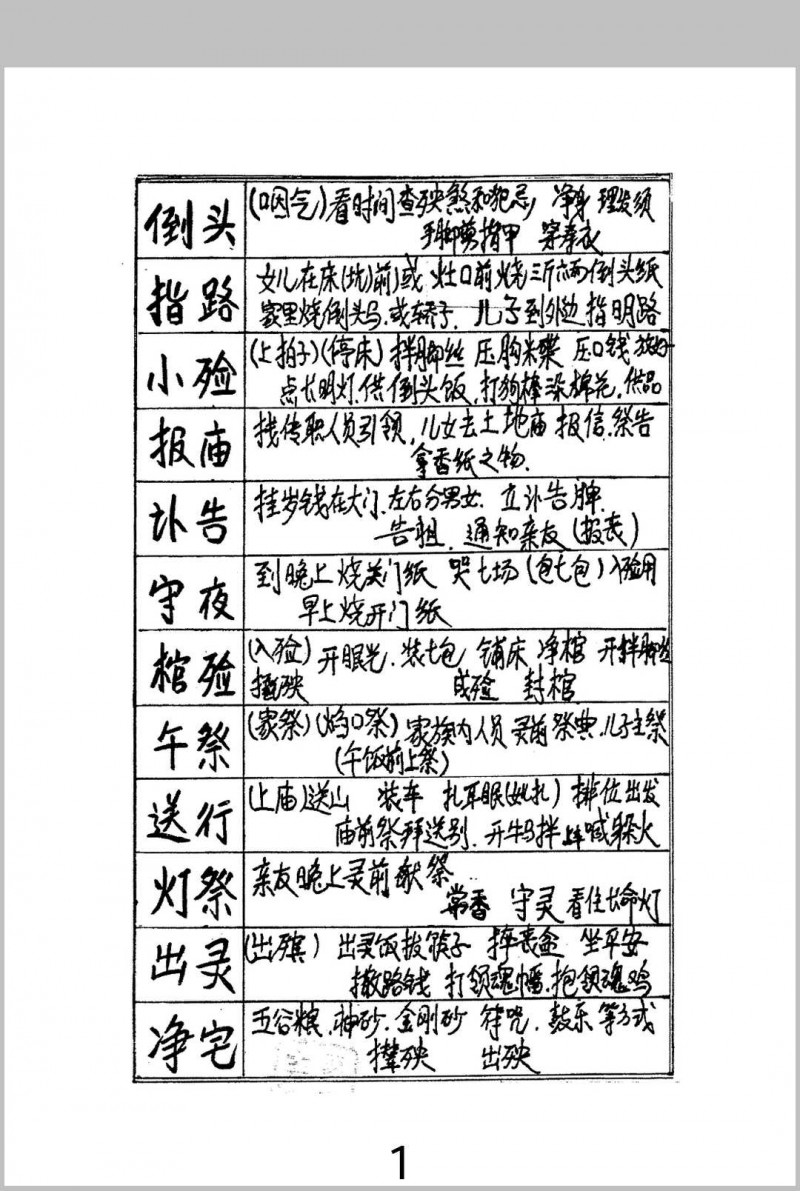 倒头
(口因气)看时间查殃煞和犯忌 净身 理发须
手脚剪指甲 穿孝衣
指路
女儿在床(坑)前)或 灶口前烧三斤六两倒头纸
家里烧倒头马.或轿子. 儿子到外边指明路
小殓
(上拍子)(停床) 拌脚丝 压胸米 压口钱
点长明灯.供倒头饭,打狗棒染棉花,供品
报庙
找传职人员引领,儿女去土地庙 报信.祭告
拿香纸之物.
讣告
挂岁钱在大门.左右分男女. 立讣告牌
告祖. 通知亲友(报丧)
守夜
到晚上烧关门纸 哭七场(包七包)入殓用
早上烧开门纸
棺殓
(入殓) 开眼光.装七包 铺床 净棺 开拌脚丝
殃 成殓 封棺
午祭
(家祭)(焰口祭) 家族内人员灵前祭典.儿子主祭
(午饭前上祭)
送行
(上庙)送山 装车 扎耳眼(女扎) 排位出发
庙前祭拜送别.开牛马拌 喊躲火
灯祭
亲友晚上灵前献祭
常香 守灵 看住长命灯
出灵
(出殡) 出灵饭拔筷子 摔丧盆 坐平安
撒路钱 打领魂幡.抱领魂鸡
净宅
五谷粮.神砂.金刚砂 符咒.鼓乐等方式
撵殃 出殃
1